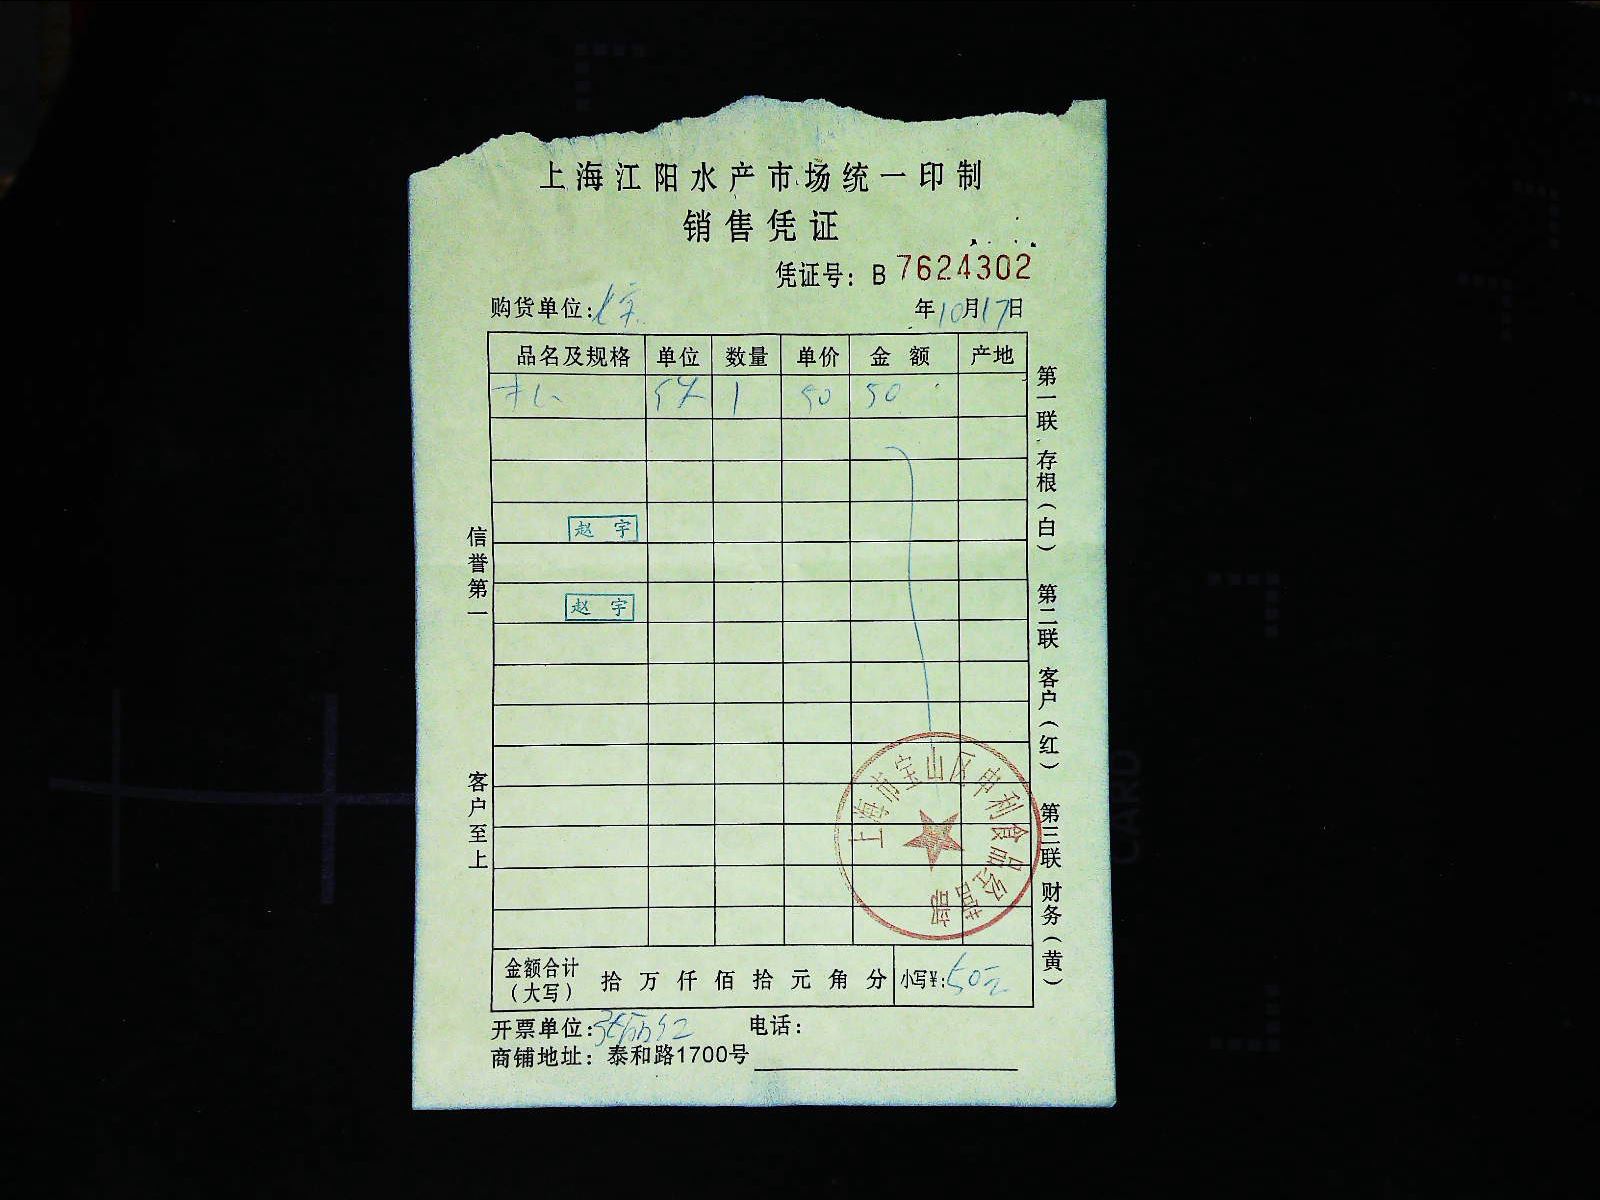 上海江阳水产市场统一印制
销售凭证
凭证号：B 7624302
购货单位：
年10月17日
品名及规格 单位 数量 单价 金额 产地
1 50 50
赵宇
赵宇
信誉第一
客户至上
第一联 存根（白） 第二联 客户（红） 第三联 财务（黄）
上海市宝山区申利食品经营部
金额合计（大写） 拾 万 仟 佰 拾 元 角 分 小写¥：50元
开票单位：张丽红 电话：
商铺地址：泰和路1700号